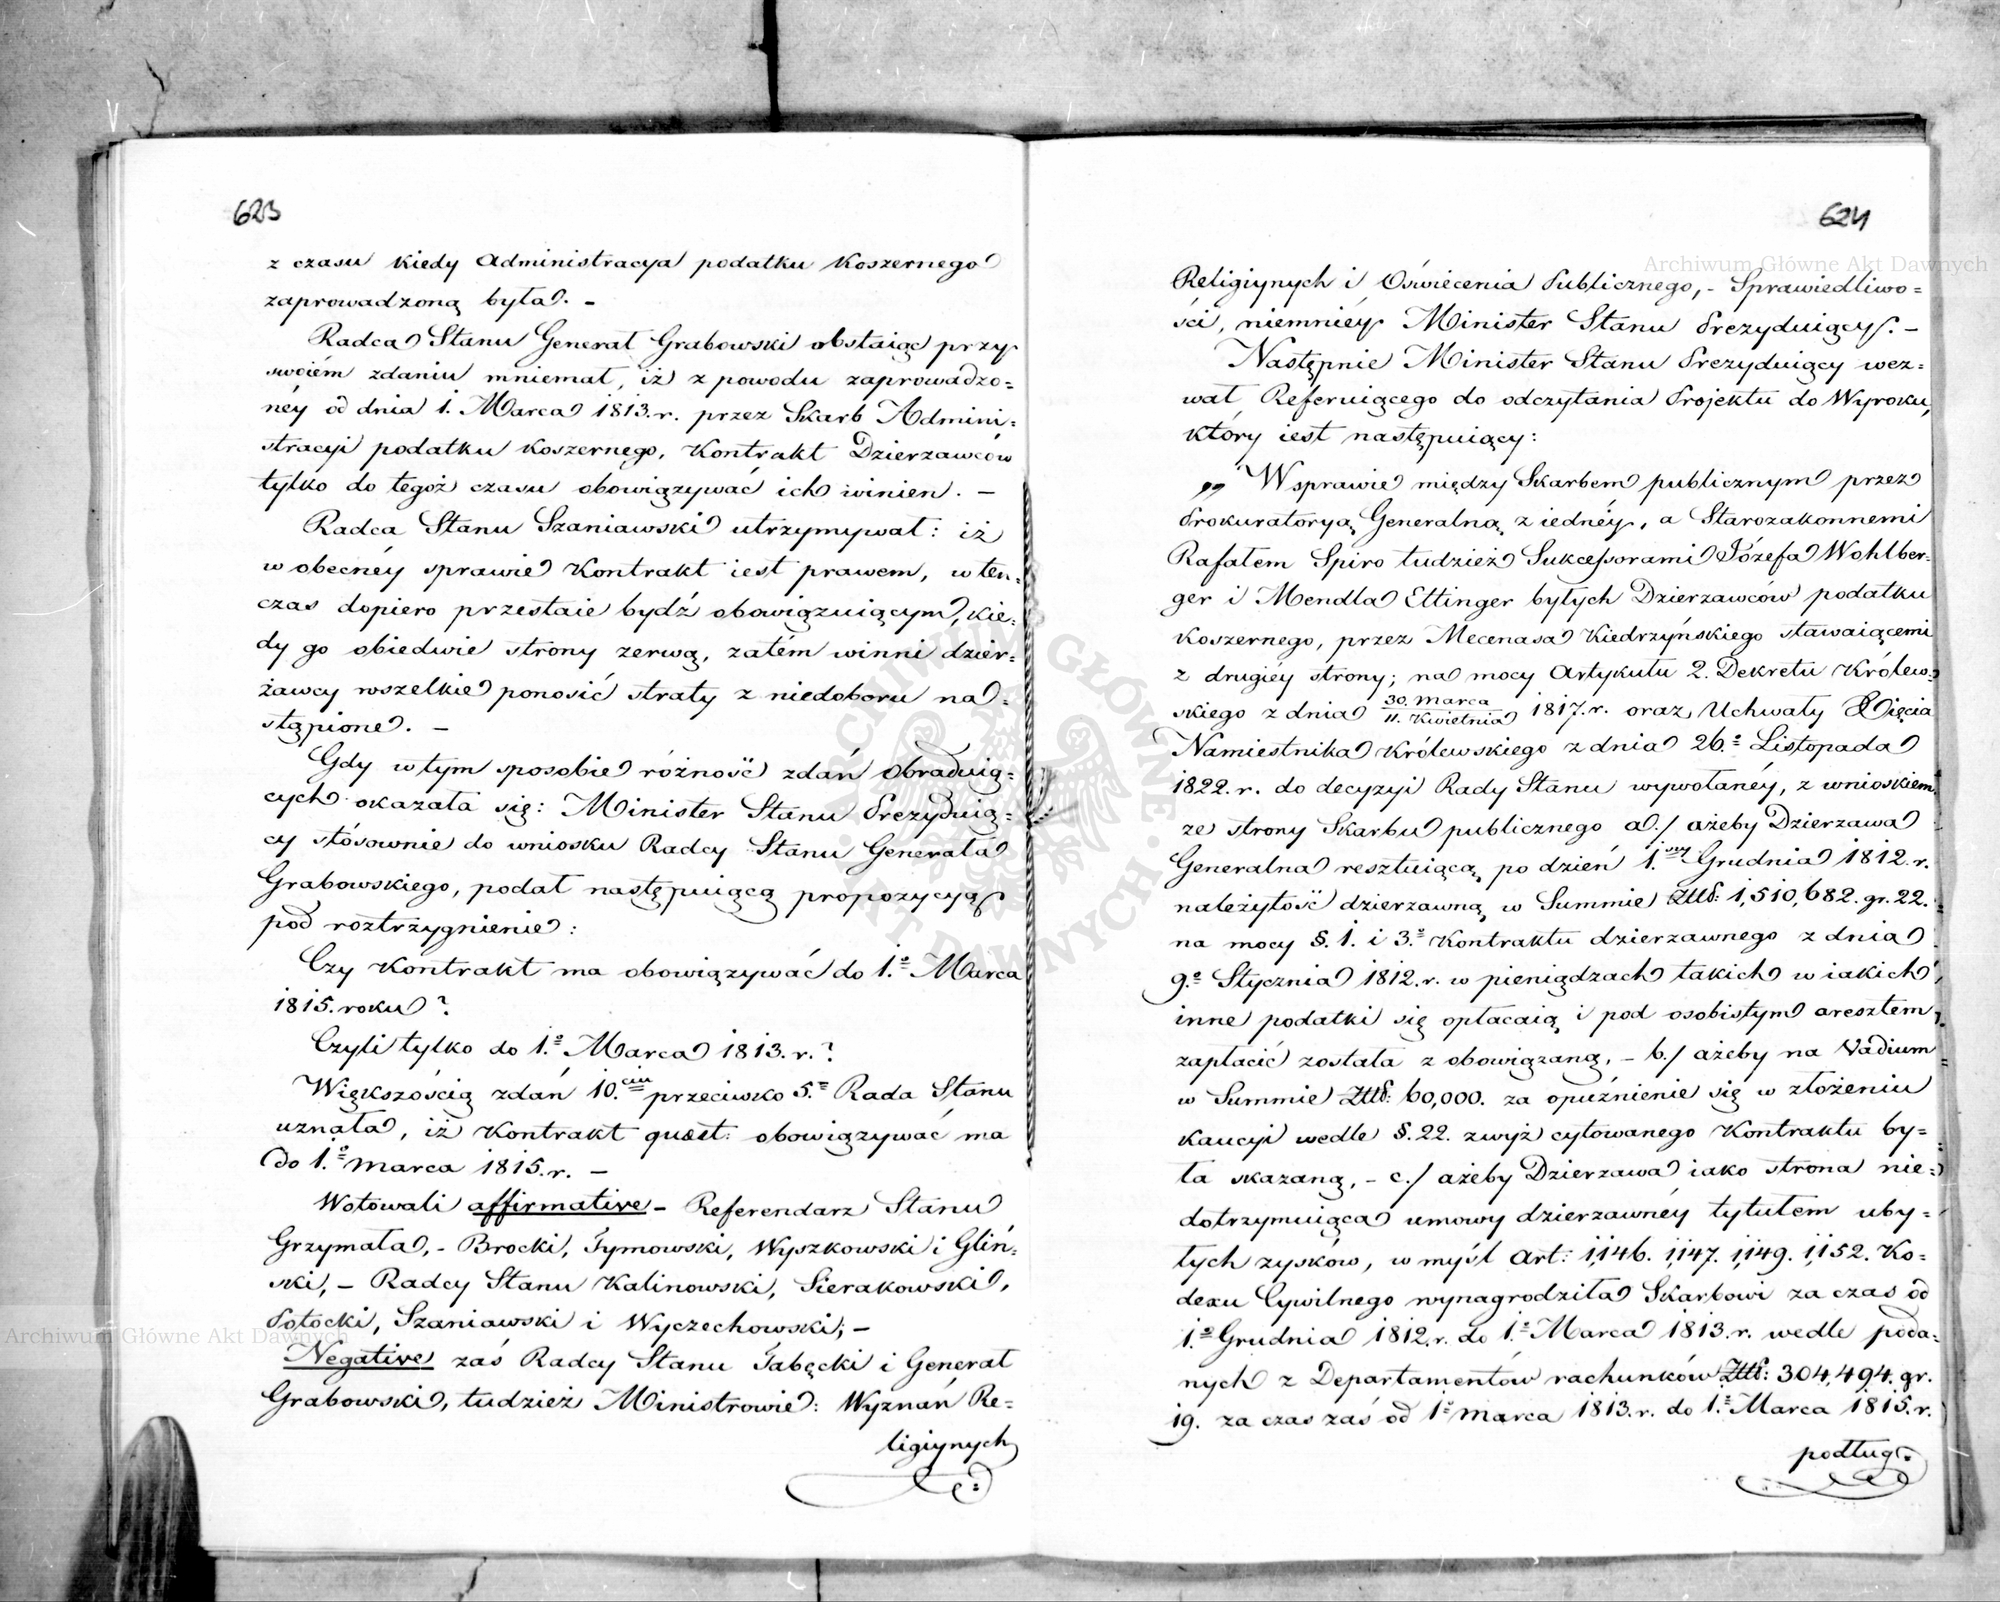 623
z czasu kiedy Administracya podatku Koszernego
zaprowadzoną była. -
Radca Stanu Generał Grabowski obstaiąc przy
swoiém zdaniu mniemał, iż z powodu zaprowadzo=
néy od dnia 1. Marca 1813. r. przez Skarb Admini=
stracyi podatku koszernego, Kontrakt Dzierzawców
tylko do tegoż czasu obowiązywać ich winien. -
Radca Stanu Szaniawski utrzymywał: iż
w obecnéy sprawie Kontrakt iest prawem, w ten=
czas dopiero przestaie bydź obowiązuiącym, kie=
dy go obiedwie strony zerwą, zatém winni dzier=
żawcy wszelkie ponosić straty z niedoboru na=
stąpione. -
Gdy w tym sposobie różność zdań obraduią=
cych okazała się: Minister Stanu Prezyduią=
cy stósownie do wniosku Radcy Stanu Generała
Grabowskiego, podał następuiącą propozycyą
pod roztrzygnienie:
Czy Kontrakt ma obowiązywać do 1.º Marca
1815. roku?
Czyli tylko do 1.º Marca 1813. r.?
Większością zdań 10.ciu przeciwko 5. Rada Stanu
uznała, iż Kontrakt quæst: obowiązywać ma
do 1.º Marca 1815. r. -
Wotowali affirmative - Referendarz Stanu
Grzymała, - Brocki, Tymowski, Wyszkowski i Gliń=
ski, - Radcy Stanu Kalinowski, Sierakowski,
Potocki, Szaniawski i Wyczechowski; -
Negative zaś Radcy Stanu Łabęcki i Generał
Grabowski, tudzież Ministrowie: Wyznań Re=
ligiynych
624
Religiynych i Oświecenia Publicznego, - Sprawiedliwo=
ści, niemniéy Minister Stanu Prezyduiący. -
Następnie Minister Stanu Prezyduiący wez=
wał Referuiącego do odczytania Projektu do Wyroku,
który iest następuiący:
„ W sprawie między Skarbem publicznym przez
Prokuratoryą Generalną z iednéy, a Starozakonnemi
Rafałem Spiro tudzież Sukcessorami Józefa Wohlber=
ger i Mendla Ettinger byłych Dzierzawców podatku
koszernego, przez Mecenasa Kiedrzyńskiego stawaiącemi
z drugiéy strony; na mocy Artykułu 2. Dekretu Królew=
skiego z dnia 30. Marca / 11. Kwietnia 1817. r. oraz Uchwały Xięcia
Namiestnika Królewskiego z dnia 26.º Listopada
1822. r. do decyzyi Rady Stanu wywołanéy, z wnioskiem
ze strony Skarbu publicznego a./ ażeby Dzierzawa
Generalna resztuiącą po dzień 1.szy Grudnia 1812. r.
należytość dzierzawną w Summie Złtd: 1,510,682. gr. 22.
na mocy §. 1. i 3.º Kontraktu dzierzawnego z dnia
9.º Stycznia 1812. r. w pieniądzach takich w iakich
inne podatki się opłacaią i pod osobistym aresztem
zapłacić została z obowiązaną, - b./ ażeby na Vadium
w Summie Złtd: 60,000. za opuźnienie się w złożeniu
kaucyi wedle §. 22. zwyż cytowanego Kontraktu by=
ła skazaną, - c./ ażeby Dzierzawa iako strona nie=
dotrzymuiąca umowy dzierzawnéy tytułem uby=
łych zysków, w myśl Art: 1,146. 1,147. 1,149. 1,152. Ko=
dexu Cywilnego wynagrodziła Skarbowi za czas od
1.º Grudnia 1812. r. do 1.º Marca 1813. r. wedle poda=
nych z Departamentów rachunków Złtd: 304,494. gr.
19. za czas zaś od 1º Marca 1813. r. do 1.º Marca 1815. r.
podług
Archiwum Główne Akt Dawnych
Archiwum Główne Akt Dawnych
ARCHIWUM GŁÓWNE AKT DAWNYCH